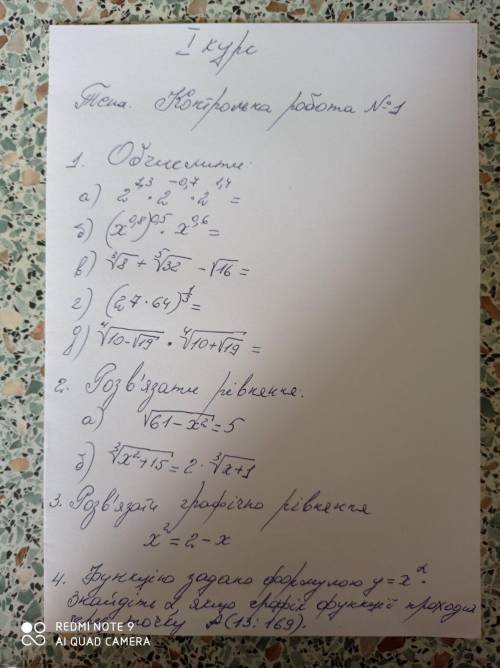 I курс
Тема. Контрольна робота №1
1. Обчислити:
а) 2^1,3 · 2^-0,7 · 2^1,4 =
б) (x^0,8)^0,5 · x^0,6 =
в) ∛8 + ⁵√32 - √16 =
г) (27·64)^1/3 =
д) ⁴√(10-√19) · ⁴√(10+√19) =
2. Розв'язати рівняння:
а) √(61-x²) = 5
б) ∛(x²+15) = 2·∛(x+1)
3. Розв'язати графічно рівняння
x² = 2-x
4. Функцію задано формулою y=x^α.
Знайдіть α, якщо графік функції проходить
через точку A(13; 169).
REDMI NOTE 9
AI QUAD CAMERA